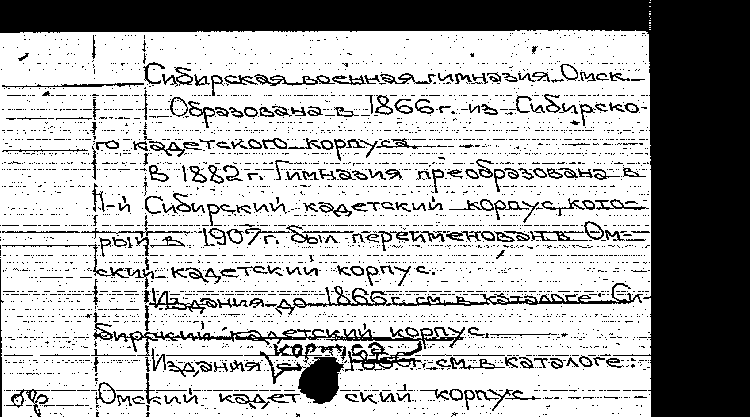 Сибирская военная гимназия. Омск.
Образована в 1866 г. из Сибирско-
го кадетского корпуса.
В 1882 г. Гимназия преобразована в
1-й Сибирский кадетский корпус, кото-
рый в 1907 г. был переименован в Ом-
ский кадетский корпус.
Издания до 1866 г. см. в каталоге: Си-
бирский кадетский корпус.
корпуса
Издания 1866 г. см. в каталоге:
Омский кадетский корпус.